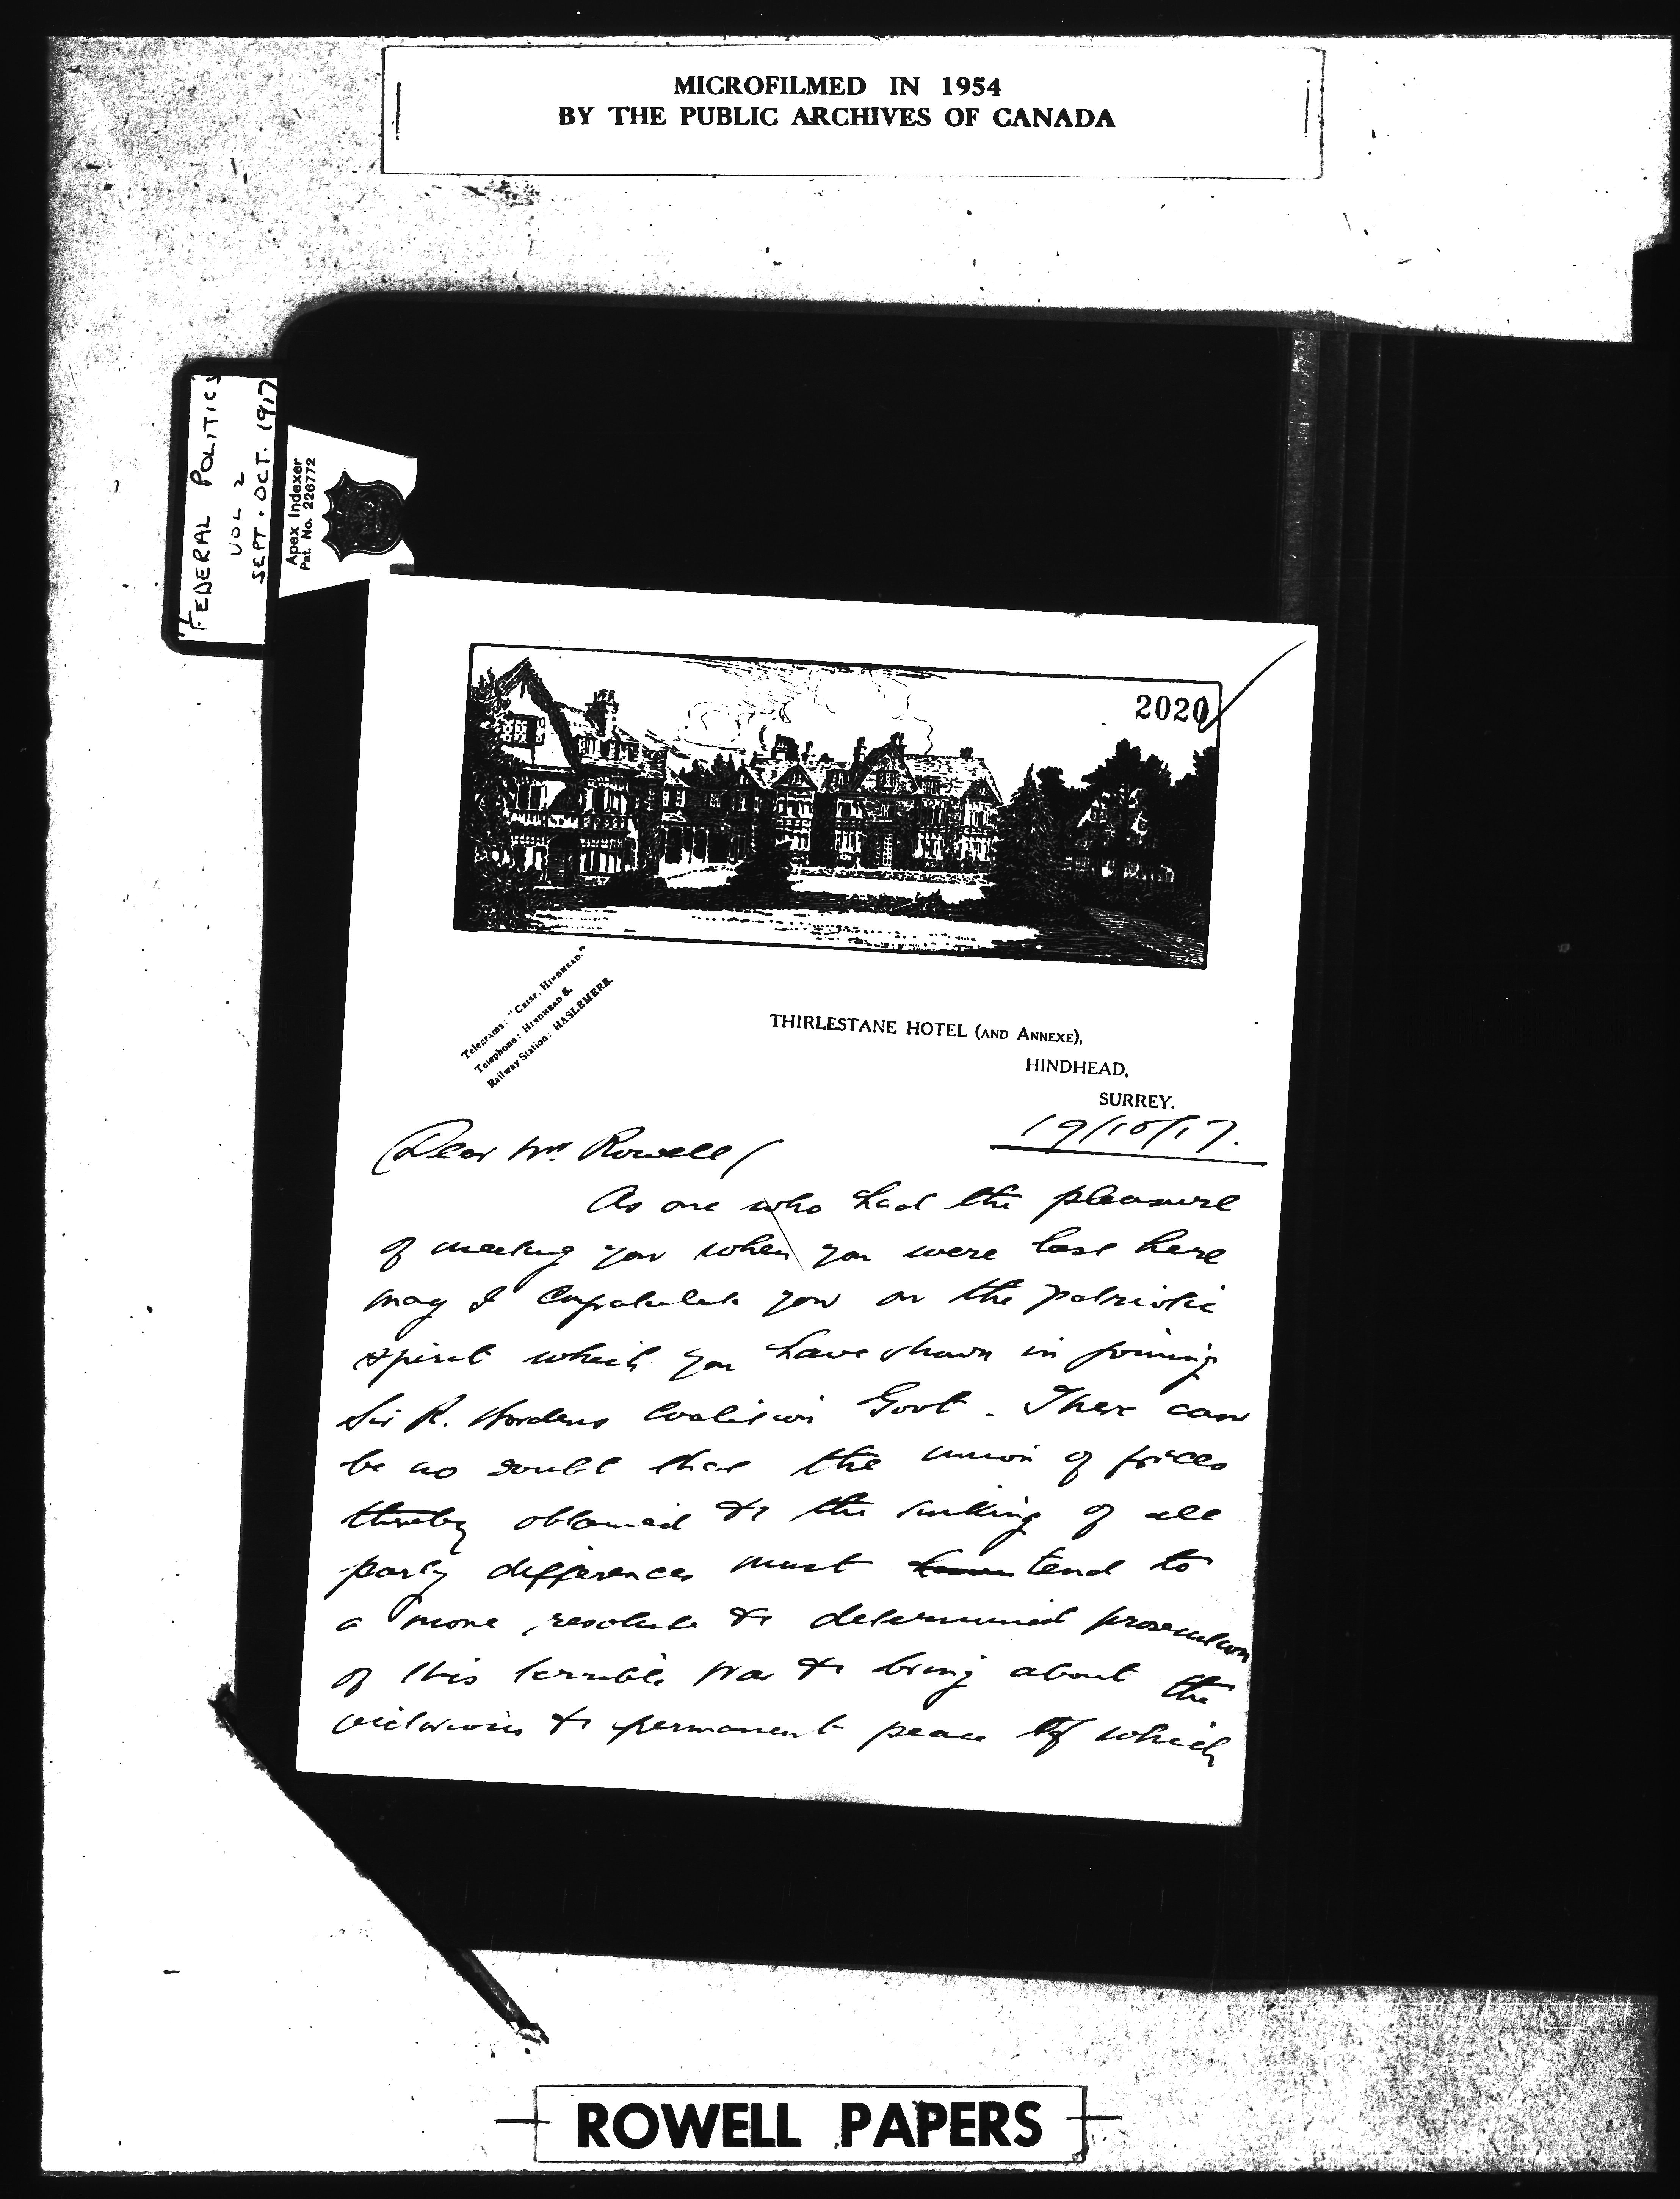 MICROFILMED IN 1954
BY THE PUBLIC ARCHIVES OF CANADA
FEDERAL POLITICS
VOL 2
SEPT. OCT. 1917
Apex Indexer
Pat. No. 226772
2020
Telegrams: "Crisp, Hindhead."
Telephone: Hindhead 5.
Railway Station: HASLEMERE.
THIRLESTANE HOTEL (AND ANNEXE),
HINDHEAD,
SURREY.
19/10/17.
Dear Mr. Rowell/
As one who had the pleasure
of meeting you when you were last here
may I congratulate you on the patriotic
spirit which you have shown in joining
Sir R. Bordens Coalition Govt. There can
be no doubt that the union of forces
thereby obtained & the sinking of all
party differences must have tend to
a more resolute & determined prosecution
of this terrible war & bring about the
victorious & permanent peace of which
ROWELL PAPERS